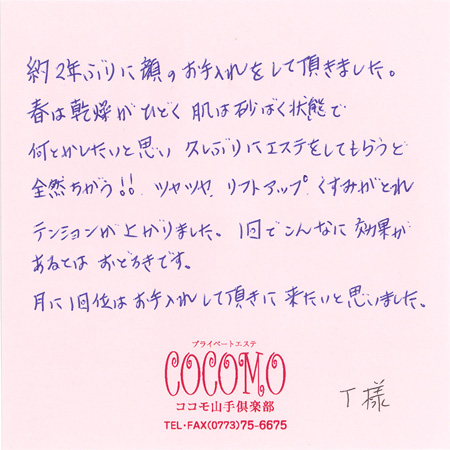 約2年ぶりに顔のお手入れをして頂きました。
春は乾燥がひどく 肌は砂ばく状態で
何とかしたいと思い 久しぶりにエステをしてもらうと
全然ちがう!! ツヤツヤ リフトアップ くすみがとれ
テンションが上がりました。1回でこんなに 効果が
あるとは おどろきです。
月に1回位はお手入れして頂きに 来たいと思いました。
プライベートエステ
COCOMO
ココモ山手倶楽部
TEL・FAX(0773)75-6675
T様